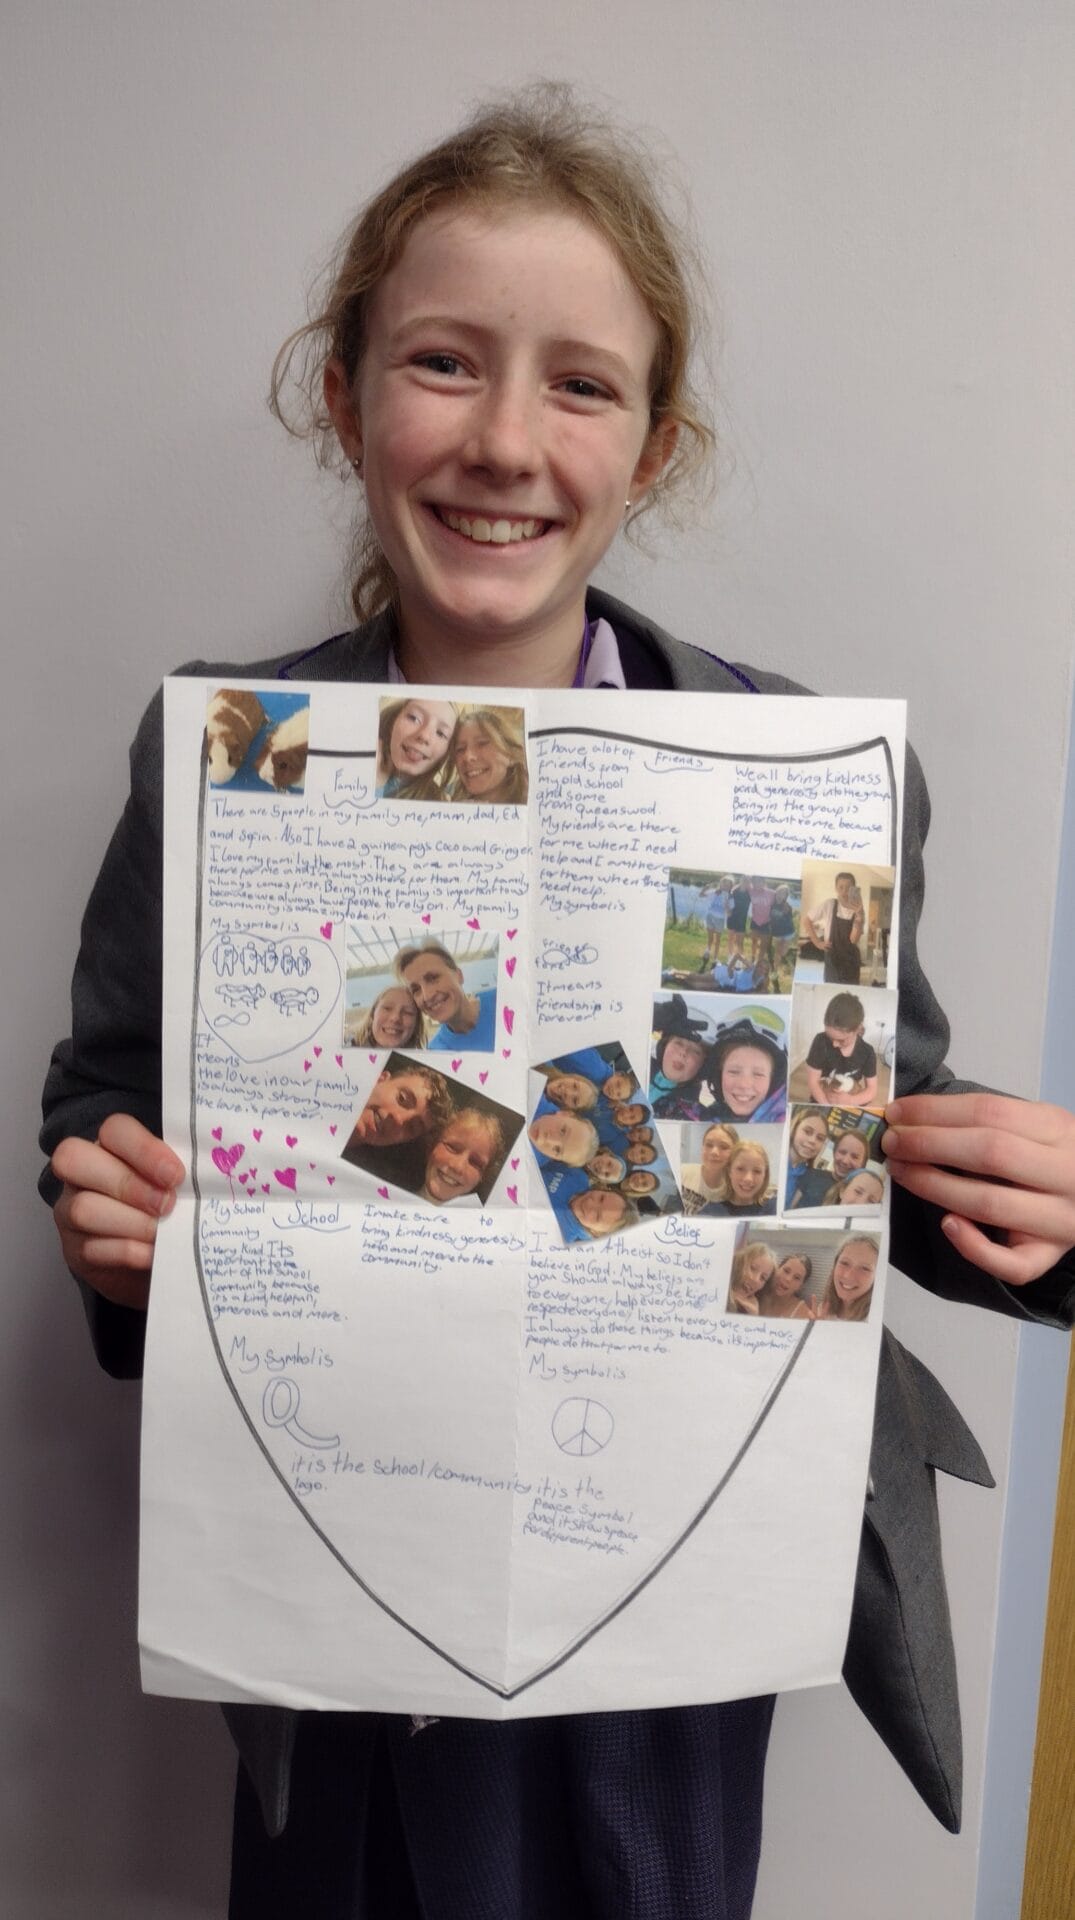 Family
There are 5 people in my family me, Mum, dad, Ed
and Sofia. Also I have 2 guinea pigs Coco and Ginger.
I love my family the most. They are always
there for me and I'm always there for them. My family
always comes first. Being in the family is important to us
because we always have people to rely on. My family
community is amazing to be in.
My symbol is
It
means
the love in our family
is always strong and
the love is forever.
Friends
I have a lot of
friends from
my old school
and some
from Queenswood.
My friends are there
for me when I need
help and I am there
for them when they
need help.
My symbol is
It means
friendship is
forever!
We all bring kindness
and generosity into the group
Being in the group is
important to me because
they are always there for
me when I need them.
School
My School
Community
is very kind. Its
important to be
apart of the school
community because
its a kind, helpfull,
generous and more.
I make sure to
bring kindness, generosity
help and more to the
community.
My symbol is
it is the school/community
logo.
Belief
I am an Atheist so I don't
believe in God. My beliefs are
you should always be kind
to everyone, help everyone,
respect everyone, listen to everyone and more
I always do these things because its important
people do that for me to.
My symbol is
it is the
peace symbol
and it shows peace
for different people.